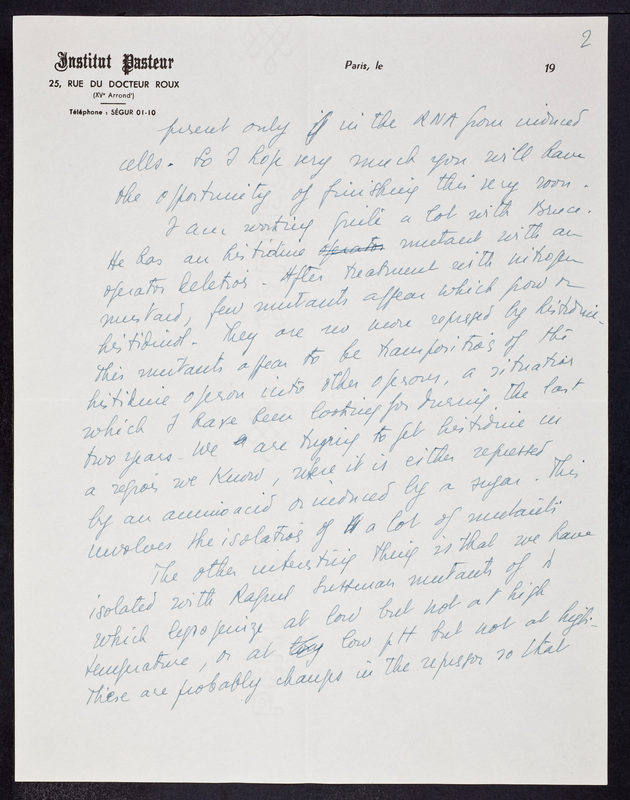 2
Institut Pasteur
25, RUE DU DOCTEUR ROUX
(XVe Arrondt)
Téléphone : SÉGUR 01-10
Paris, le 19
present only if in the RNA from induced
cells. So I hope very much you will have
the opportunity of finishing this very soon.
I am working quite a lot with Bruce.
He has an histidine operator mutant with an
operator deletion. After treatment with nitrogen
mustard, few mutants appear which grow on
histidinol. They are no more repressed by histidine.
This mutants appear to be transpositions of the
histidine operon into other operons, a situation
which I have been looking for during the last
two years. We are trying to get histidine in
a region we know, where it is either repressed
by an aminoacid or induced by a sugar. This
involves the isolation of a lot of mutants
The other interesting thing is that we have
isolated with Raquel Sussman mutants of λ
which lysogenize at low but not at high
temperature, or at low pH but not at high.
These are probably changes in the repressor so that